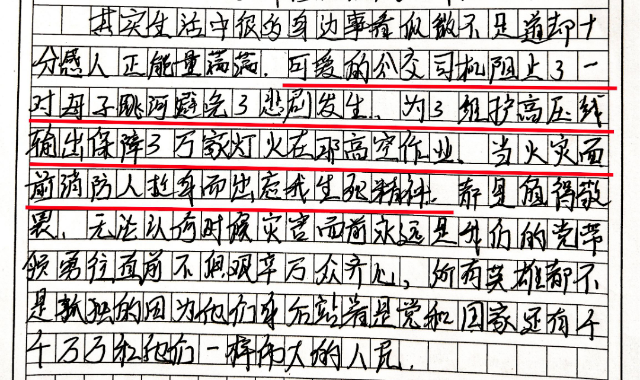 其实生活中很多身边事看似微不足道却十
分感人正能量满满.可爱的公交司机阻止了一
对母子跳河避免了悲剧发生.为了维护高压线
输出保障了万家灯火在那高空作业.当火灾面
前消防人挺身而出忘我生死精神.都是值得敬
畏.无法认何时候灾害面前永远是他们的党带
领勇往直前不惧艰辛万众齐心,所有英雄都不
是孤独的因为他们身后站着是党和国家还有千
千万万和他们一样伟大的人民.